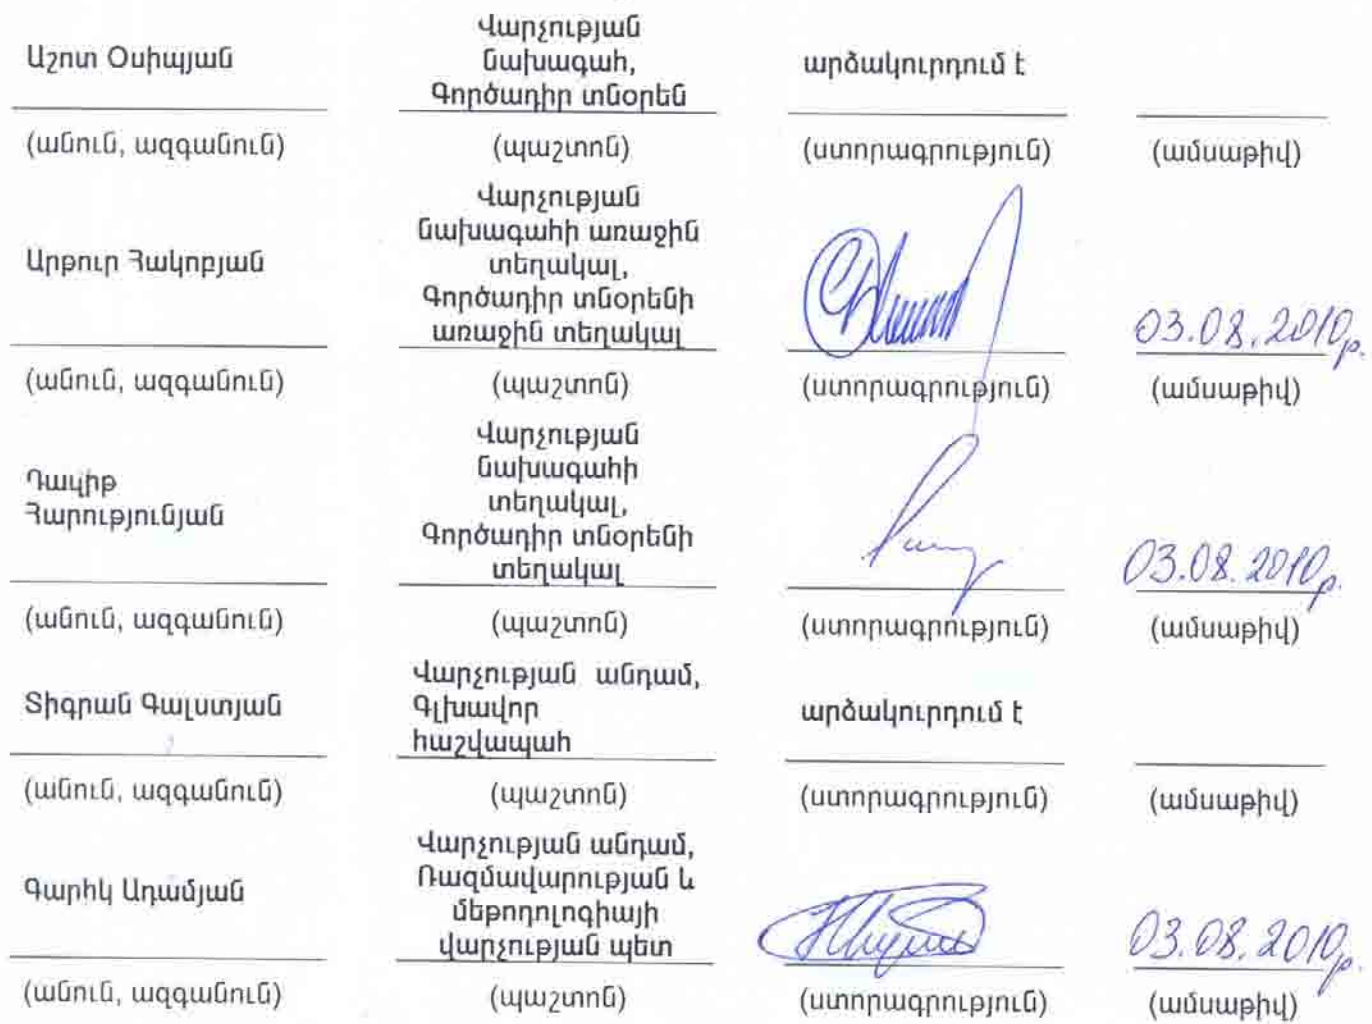 Աշոտ Օսիպյան
Վարչության
նախագահ,
Գործադիր տնօրեն
արձակուրդում է
(անուն, ազգանուն) (պաշտոն) (ստորագրություն) (ամսաթիվ)
Արթուր Հակոբյան
Վարչության
նախագահի առաջին
տեղակալ,
Գործադիր տնօրենի
առաջին տեղակալ
03.08.2010թ.
(անուն, ազգանուն) (պաշտոն) (ստորագրություն) (ամսաթիվ)
Դավիթ
Հարությունյան
Վարչության
նախագահի
տեղակալ,
Գործադիր տնօրենի
տեղակալ
03.08.2010թ.
(անուն, ազգանուն) (պաշտոն) (ստորագրություն) (ամսաթիվ)
Տիգրան Գալստյան
Վարչության անդամ,
Գլխավոր
հաշվապահ
արձակուրդում է
(անուն, ազգանուն) (պաշտոն) (ստորագրություն) (ամսաթիվ)
Գարիկ Ադամյան
Վարչության անդամ,
Ռազմավարության և
մեթոդոլոգիայի
վարչության պետ
03.08.2010թ.
(անուն, ազգանուն) (պաշտոն) (ստորագրություն) (ամսաթիվ)